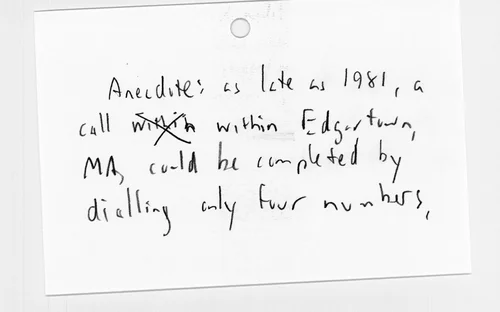 Anecdote: as late as 1981, a
call within within Edgartown,
MA, could be completed by
dialling only four numbers,